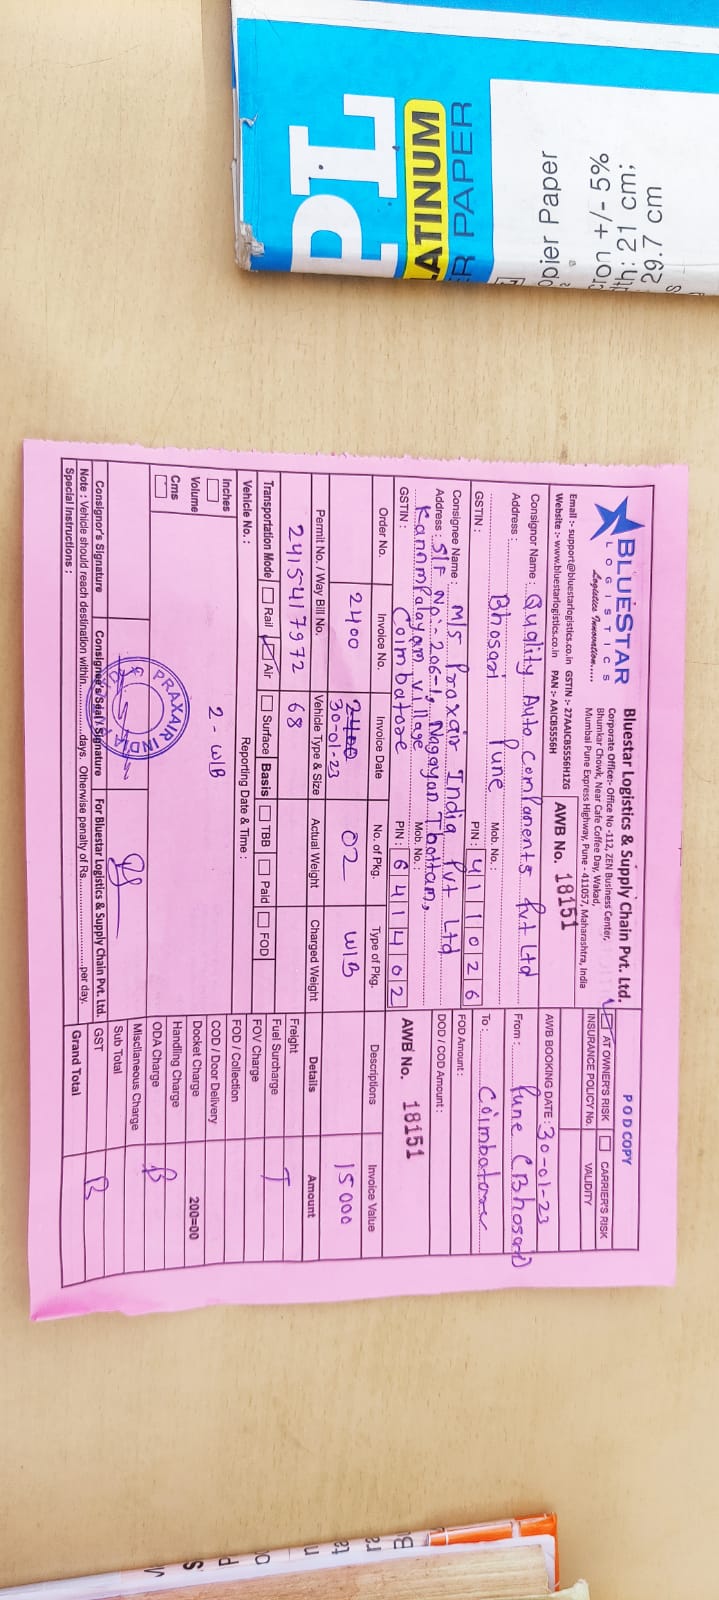 PL
LATINUM
ER PAPER
opier Paper
cron +/- 5%
th: 21 cm:
29.7 cm
BLUESTAR
LOGISTICS
Logistics Innovation.....
Bluestar Logistics & Supply Chain Pvt. Ltd.
Corporate Office:- Office No -112, ZEN Business Center,
Bhumkar Chowk, Near Cafe Coffee Day, Wakad,
Mumbai Pune Express Highway, Pune - 411057, Maharashtra, India
Email :- support@bluestarlogistics.co.in GSTIN :- 27AAICB5556H1ZG
Website :- www.bluestarlogistics.co.in PAN :- AAICB5556H
AWB No. 18151
POD COPY
AT OWNER'S RISK CARRIER'S RISK
INSURANCE POLICY No. VALIDITY
AWB BOOKING DATE : 30-01-23
Consignor Name : Quality Auto Components Pvt Ltd
Address :
Bhosari Pune
Mob. No. :
GSTIN : PIN : 411026
From : Pune (Bhosari)
To : Coimbatore
Consignee Name : M/S Praxair India Pvt Ltd
Address : S/F No:- 206-1, Nagayan Thottam,
Kannmpalayam Village Mob. No. :
Coimbatore
GSTIN : PIN : 641402
FOD Amount :
DOD / COD Amount :
AWB No. 18151
Order No. Invoice No. Invoice Date No. of Pkg. Type of Pkg. Descriptions Invoice Value
2400 2400 30-01-23 02 W/B 15000
Permit No. / Way Bill No. Vehicle Type & Size Actual Weight Charged Weight Details Amount
2415417972 68
Transportation Mode Rail Air Surface Basis TBB Paid FOD
Vehicle No. : Reporting Date & Time :
Inches
Volume
Cms
2 - W/B
Freight
Fuel Surcharge
FOV Charge
FOD / Collection
COD / Door Delivery
Docket Charge 200=00
Handling Charge
ODA Charge
Miscllaneous Charge
Sub Total
GST
Grand Total
PRAXAIR INDIA
Consignor's Signature Consignee's/Seal / Signature For Bluestar Logistics & Supply Chain Pvt. Ltd.
Note : Vehicle should reach destination within..............days. Otherwise penalty of Rs..............per day.
Special Instructions :